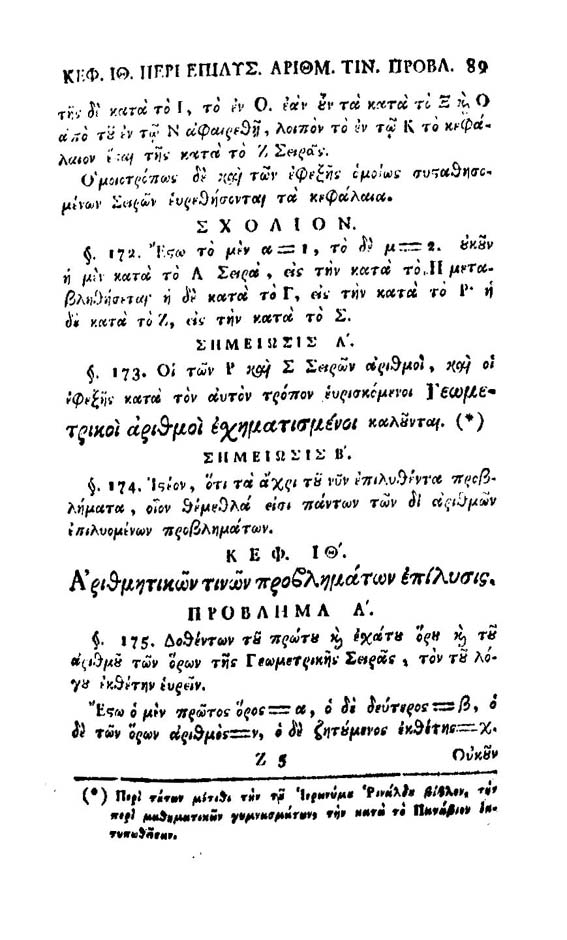 ΚΕΦ. ΙΘ. ΠΕΡΙ ΕΠΙΛΥΣ. ΑΡΙΘΜ. ΤΙΝ. ΠΡΟΒΛ. 89
τῆς δὲ κατὰ τὸ Ι, τὸ ἐν Ο. ἐὰν ȣ̓ν τὰ κατὰ τὸ Ξ ϗ Ο
ἀπὸ τȣ͂ ἐν τῷ Ν ἀφαιρεθῇ, λοιπὸν τὸ ἐν τῷ Κ τὸ κεφά-
λαιον ἔϛαι τῆς κατὰ τὸ Ζ Σειρᾶς.
Ὁμοιοτρόπως δὲ καὶ τῶν ἐφεξῆς ὁμοίως συϛαθησο-
μένων Σειρῶν ἑυρεθήσονται τὰ κεφάλαια.
ΣΧΟΛΙΟΝ.
§. 172. Ἔϛω τὸ μὲν α = 1, τὸ δὲ μ = 2. ȣ̓κȣ͂ν
ἡ μὲν κατὰ τὸ Λ Σειρὰ, εἰς τὴν κατὰ τὸ Π μετα-
βληθήσεται· ἡ δὲ κατὰ τὸ Γ, εἰς τὴν κατὰ τὸ Ρ· ἡ
δὲ κατὰ τὸ Ζ, εἰς τὴν κατὰ τὸ Σ.
ΣΗΜΕΙΩΣΙΣ Α´.
§. 173. Οἱ τῶν Ρ καὶ Σ Σειρῶν ἀριθμοὶ, καὶ οἱ
ἐφεξῆς κατὰ τὸν ἀυτὸν τρόπον ἑυρισκόμενοι Γεωμε-
τρικοὶ ἀριθμοὶ ἐχηματισμένοι καλȣ͂νται. (*)
ΣΗΜΕΙΩΣΙΣ Β´.
§. 174. Ἰϛέον, ὅτι τὰ ἄχρι τȣ͂ νῦν ἐπιλυθέντα προβ-
λήματα, οἷον θέμεθλά εἰσι πάντων τῶν δι ἀριθμῶν
ἐπιλυομένων προβλημάτων.
ΚΕΦ. ΙΘ´.
Ἀριθμητικῶν τινῶν προβλημάτων ἐπίλυσις.
ΠΡΟΒΛΗΜΑ Α´.
§. 175. Δοθέντων τȣ͂ πρώτȣ ϗ ἐχάτȣ ὅρȣ ϗ τȣ͂
ἀριθμȣ͂ τῶν ὅρων τῆς Γεωμετρικῆς Σειρᾶς, τὸν τȣ͂ λό-
γȣ ἐκθέτην ἑυρεῖν.
Ἔϛω ὁ μὲν πρῶτος ὅρος = α, ὁ δὲ δεύτερος = β, ὁ
δὲ τῶν ὅρων ἀριθμὸς = ν, ὁ δὲ ζητȣ́μενος ἐκθέτης = χ.
Ζ 5 Οὐκȣ͂ν
(*) Περὶ τȣ́των μέτιθι τὴν τȣ͂ Ἱερωνύμȣ Ῥινάλδȣ βίβλον, τὴν
περὶ μαθηματικῶν γυμνασμάτων, τὴν κατὰ τὸ Πατάβιον ἐκ-
τυπωθεῖσαν.